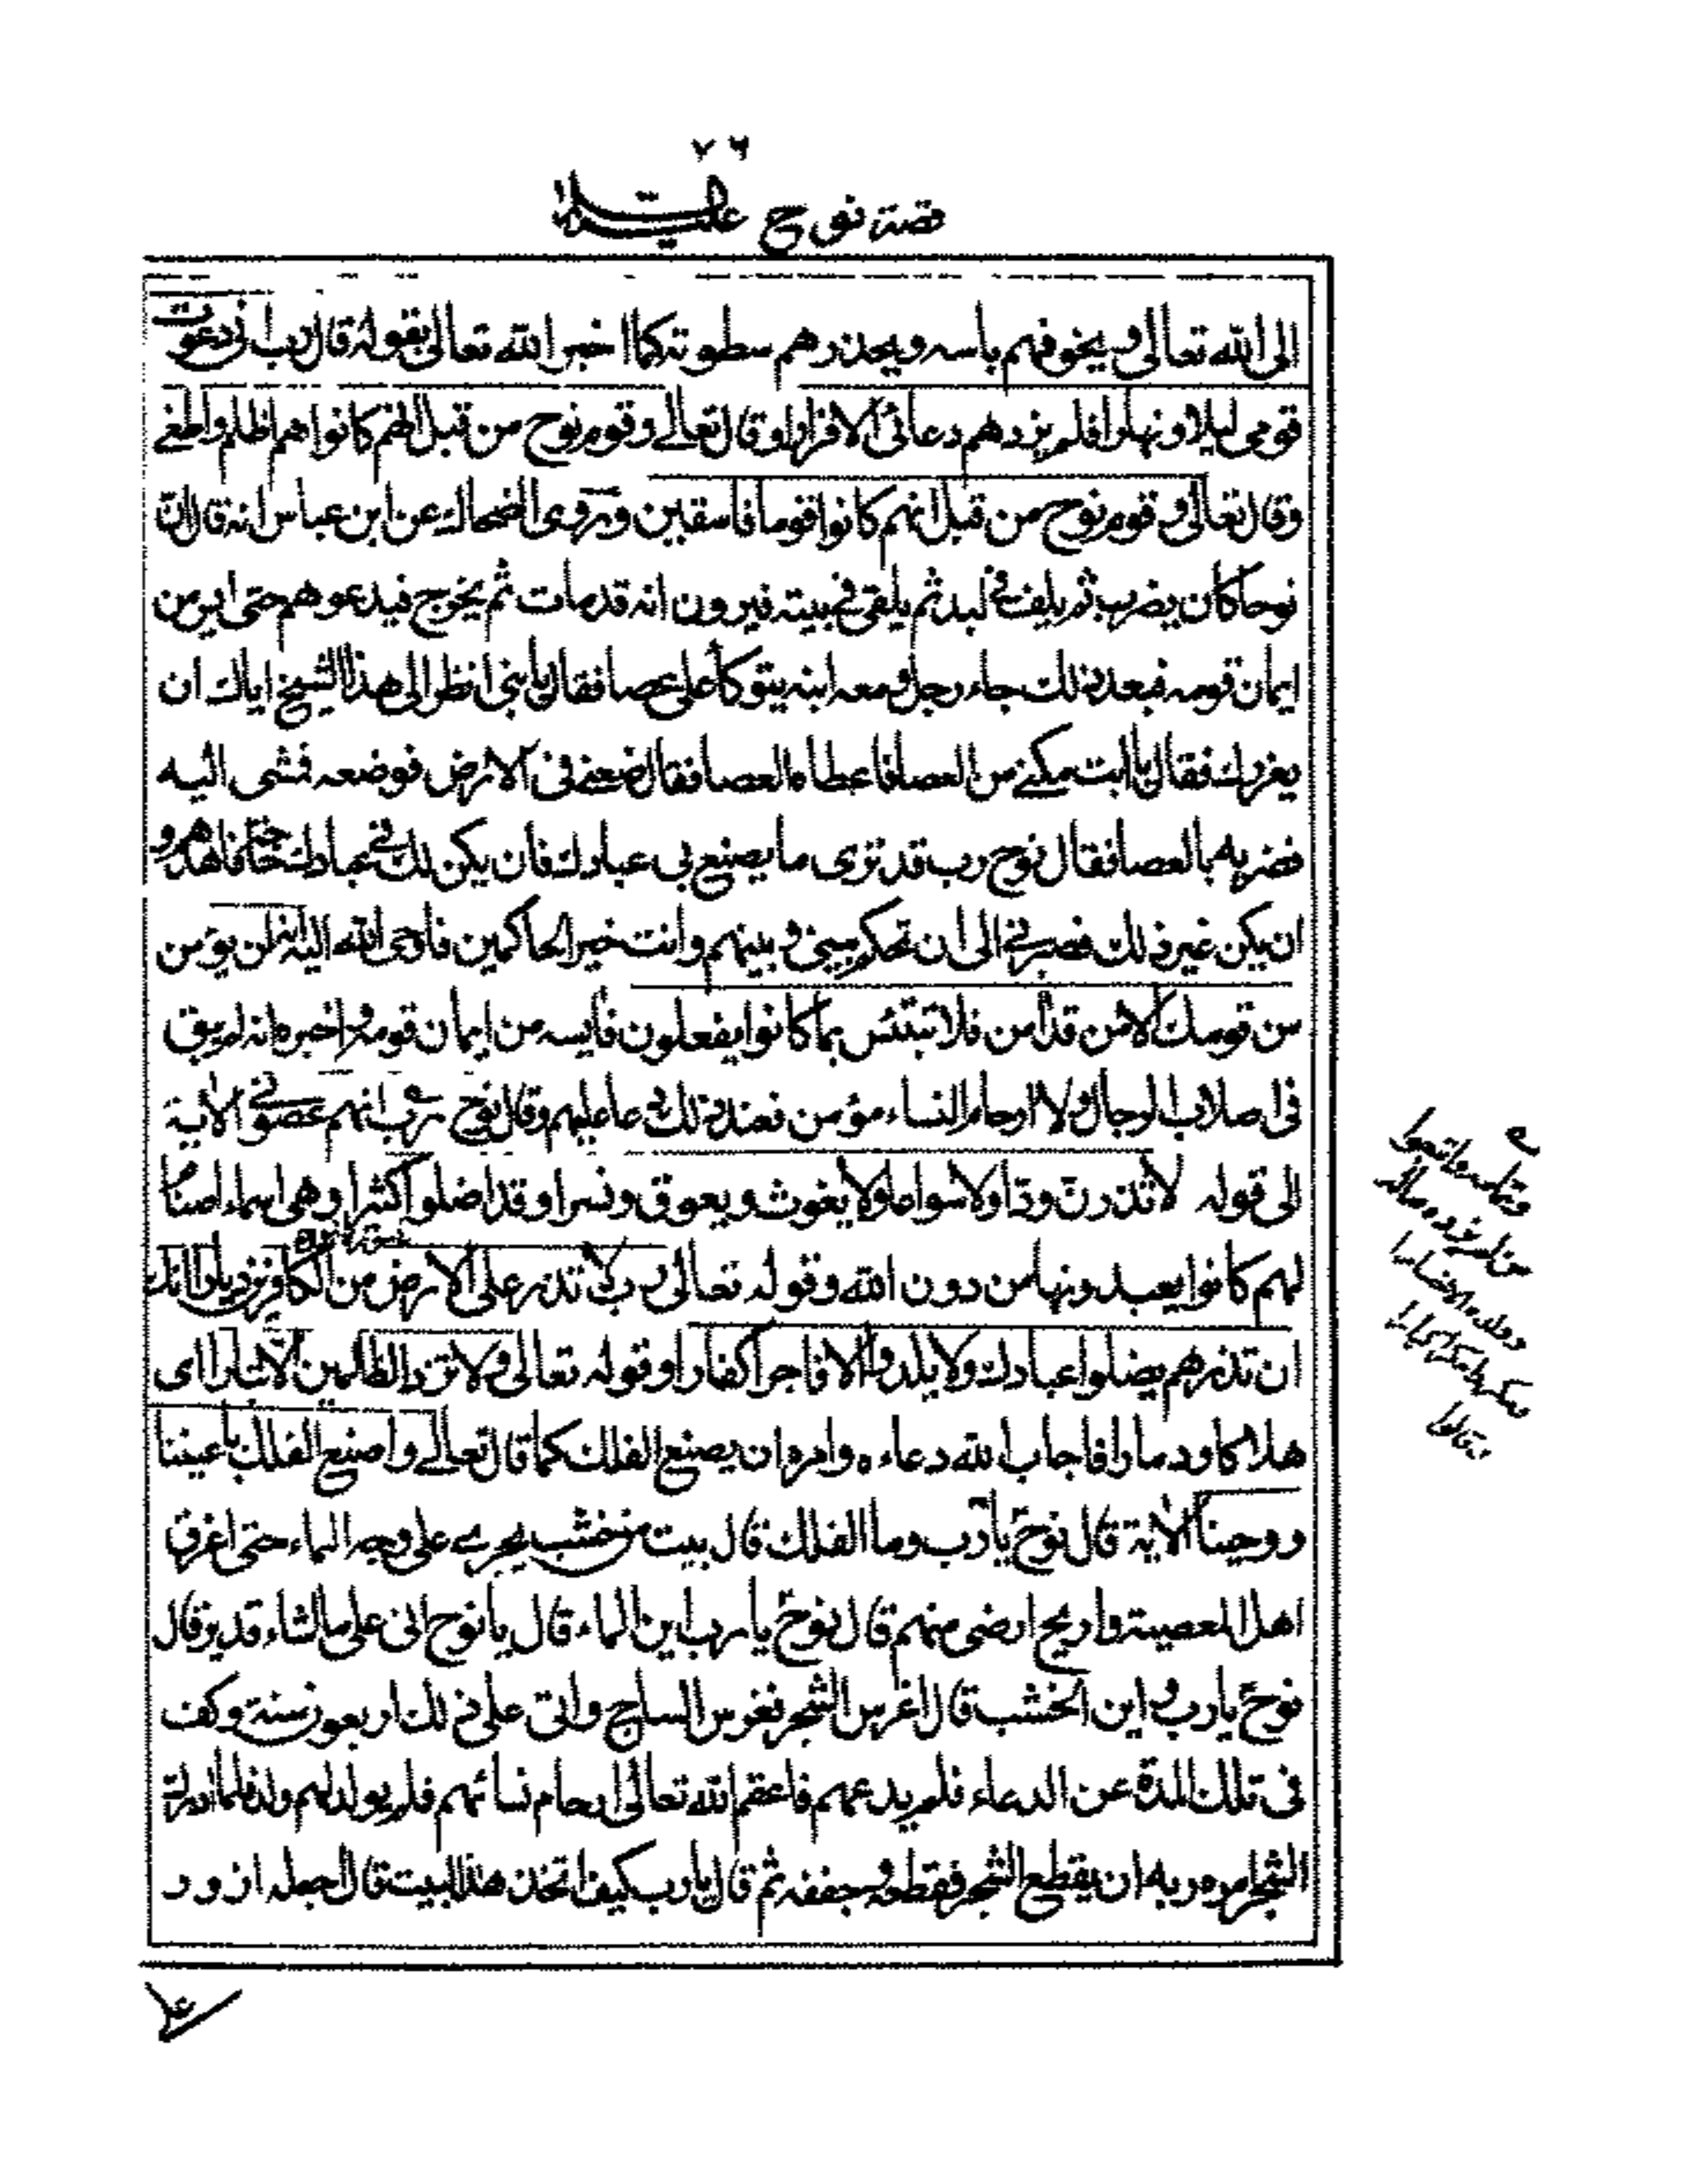 ٧٦
قصة نوح عليه السلام
الى الله تعالى ويخوفهم باسه ويحذرهم سطوته كما اخبر الله تعالى بقوله قال رب انى دعوت
قومى ليلا ونهارا فلم يزدهم دعائى الا فرارا وقال تعالى وقوم نوح من قبل انهم كانوا هم اظلم واطغى
وقال تعالى وقوم نوح من قبل انهم كانوا قوما فاسقين وروى الضحاك عن ابن عباس انه قال ان
نوحا كان يضرب ثم يلف فى لبد ثم يلقى فى بيته فيرون انه قد مات ثم يخرج فيدعوهم حتى ايس من
ايمان قومه فبعد ذلك جاء رجل ومعه ابنه يتوكأ على عصا فقال يا بنى انظر الى هذا الشيخ اياك ان
يغرك فقال يا ابت مكنى من العصا فاعطاه العصا فقال ضعنى فى الارض فوضعه فمشى اليه
فضربه بالعصا فقال نوح رب قد ترى ما يصنع بى عبادك فان يكن لك فى عبادك حاجة فاهدهم و
ان يكن غير ذلك فصبرنى الى ان تحكم بينى وبينهم وانت خير الحاكمين فاوحى الله اليه انه لن يؤمن
من قومك الا من قد أمن فلا تبتئس بما كانوا يفعلون فأيسه من ايمان قومه واخبره انه لم يبق
فى اصلاب الرجال ولا ارحام النساء مؤمن فعند ذلك دعا عليهم وقال نوح رب انهم عصونى الأية
الى قوله لا تذرن ودا ولا سواعا ولا يغوث ويعوق ونسرا وقد اضلوا كثيرا وهى اسماء اصنام
لهم كانوا يعبدونها من دون الله وقوله تعالى رب لا تذر على الارض من الكافرين ديارا انك
ان تذرهم يضلوا عبادك ولا يلدوا الا فاجرا كفارا وقوله تعالى ولا تزد الظالمين الا تبارا اى
هلاكا ودمارا فاجاب الله دعاءه وامره ان يصنع الفلك كما قال تعالى واصنع الفلك باعيننا
ووحينا الأية قال نوح يا رب وما الفلك قال بيت من خشب يجرى على وجه الماء حتى اغرق
اهل المعصية واريح ارضى منهم قال نوح يا رب اين الماء قال يا نوح انى على ما اشاء قدير قال
نوح يا رب واين الخشب قال اغرس الشجر فغرس الساج واتى على ذلك اربعون سنة وكف
فى تلك المدة عن الدعاء فلم يدعهم فاعقم الله تعالى ارحام نسائهم فلم يولد لهم ولد فلما ادرك
الشجر امره ربه ان يقطع الشجر فقطعه وجففه ثم قال يا رب كيف اتخذ هذا البيت قال اجعله ازور